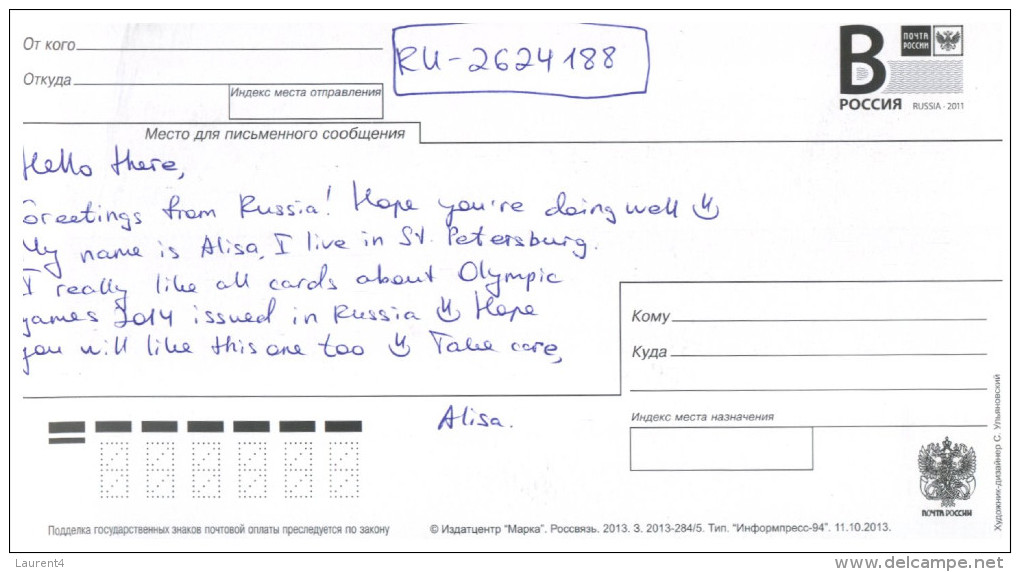 От кого
RU-2624188
ПОЧТА РОССИИ
B
Откуда
Индекс места отправления
РОССИЯ RUSSIA · 2011
Место для письменного сообщения
Hello there,
Greetings from Russia! Hope you're doing well
My name is Alisa, I live in St. Petersburg.
I really like all cards about Olympic
games 2014 issued in Russia Hope
you will like this one too Take care,
Alisa.
Кому
Куда
Индекс места назначения
ПОЧТА РОССИИ
Художник-дизайнер С. Ульяновский
Подделка государственных знаков почтовой оплаты преследуется по закону
© Издатцентр "Марка". Россвязь. 2013. З. 2013-284/5. Тип. "Информпресс-94". 11.10.2013.
Laurent4
delcampe.net